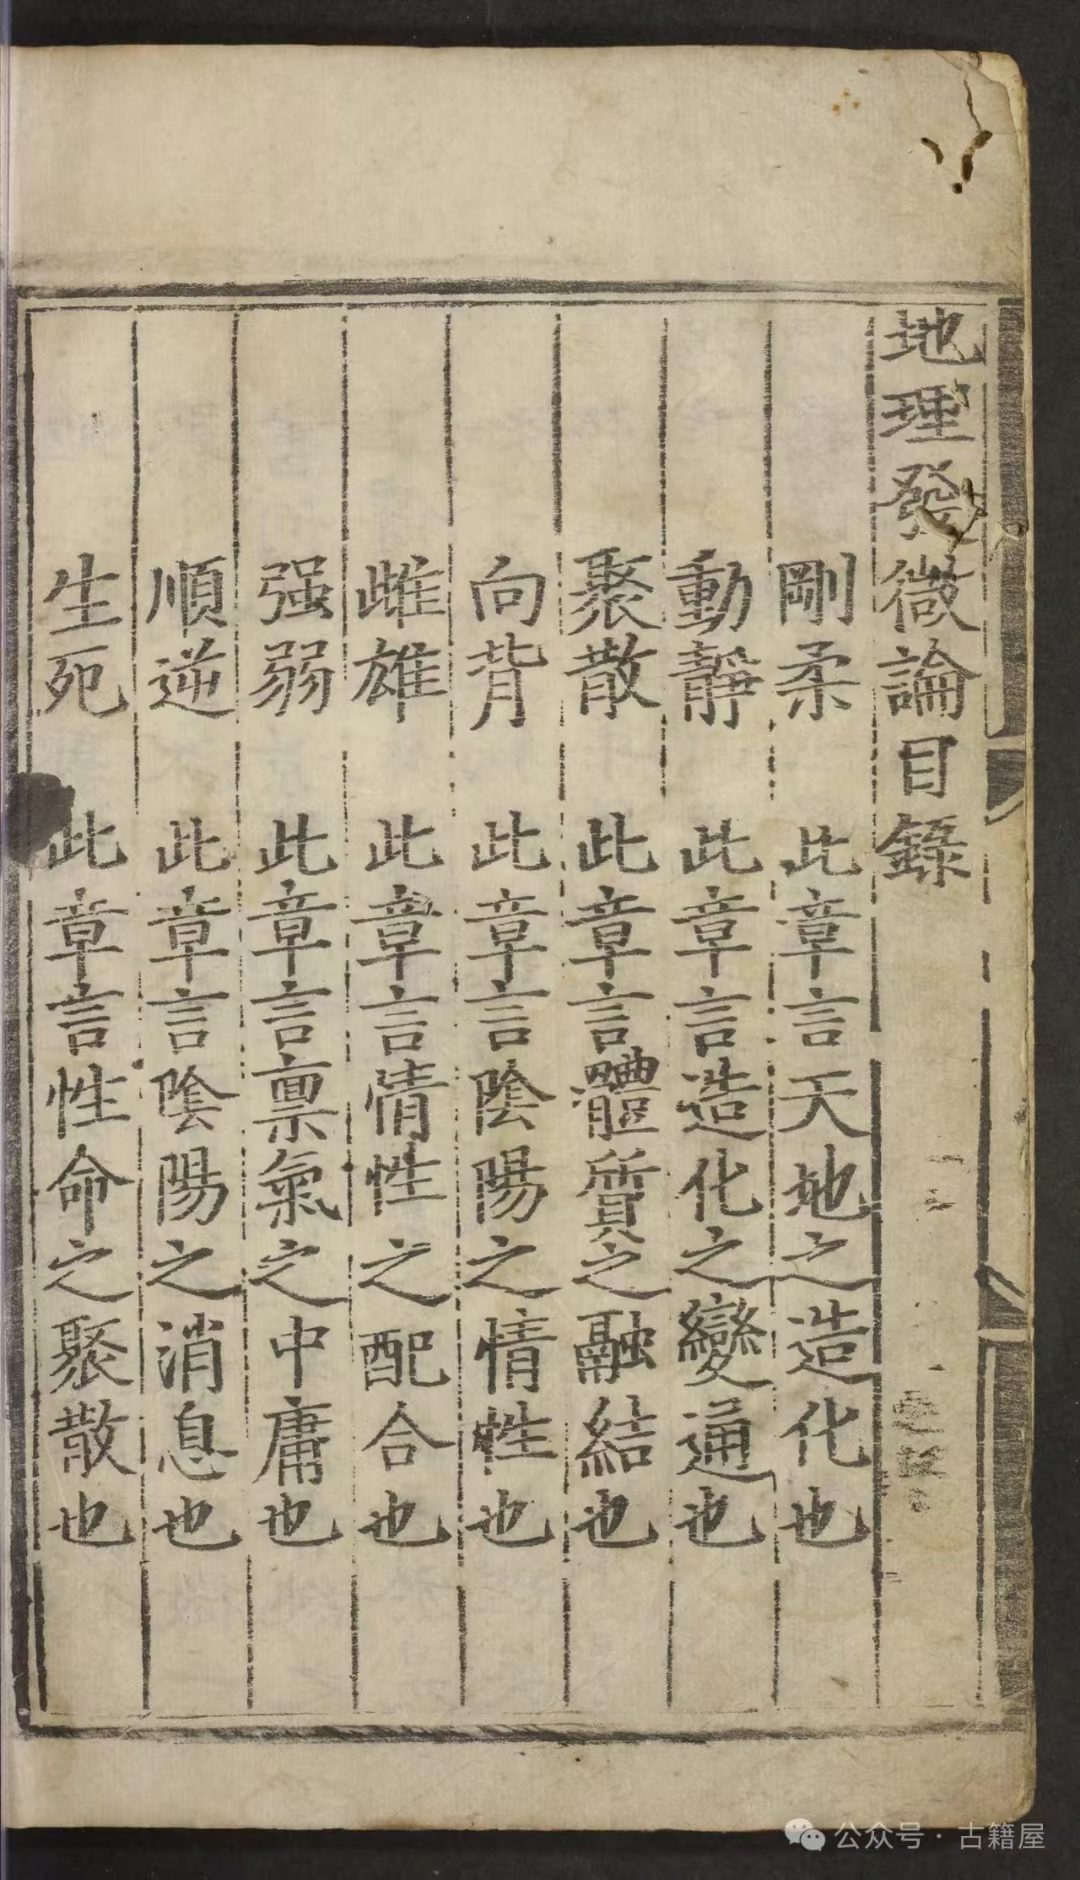 地理發微論目錄
剛柔 此章言天地之造化也
動靜 此章言造化之變通也
聚散 此章言體質之融結也
向背 此章言陰陽之情性也
雌雄 此章言情性之配合也
强弱 此章言禀氣之中庸也
順逆 此章言陰陽之消息也
生死 此章言性命之聚散也
公众号·古籍屋